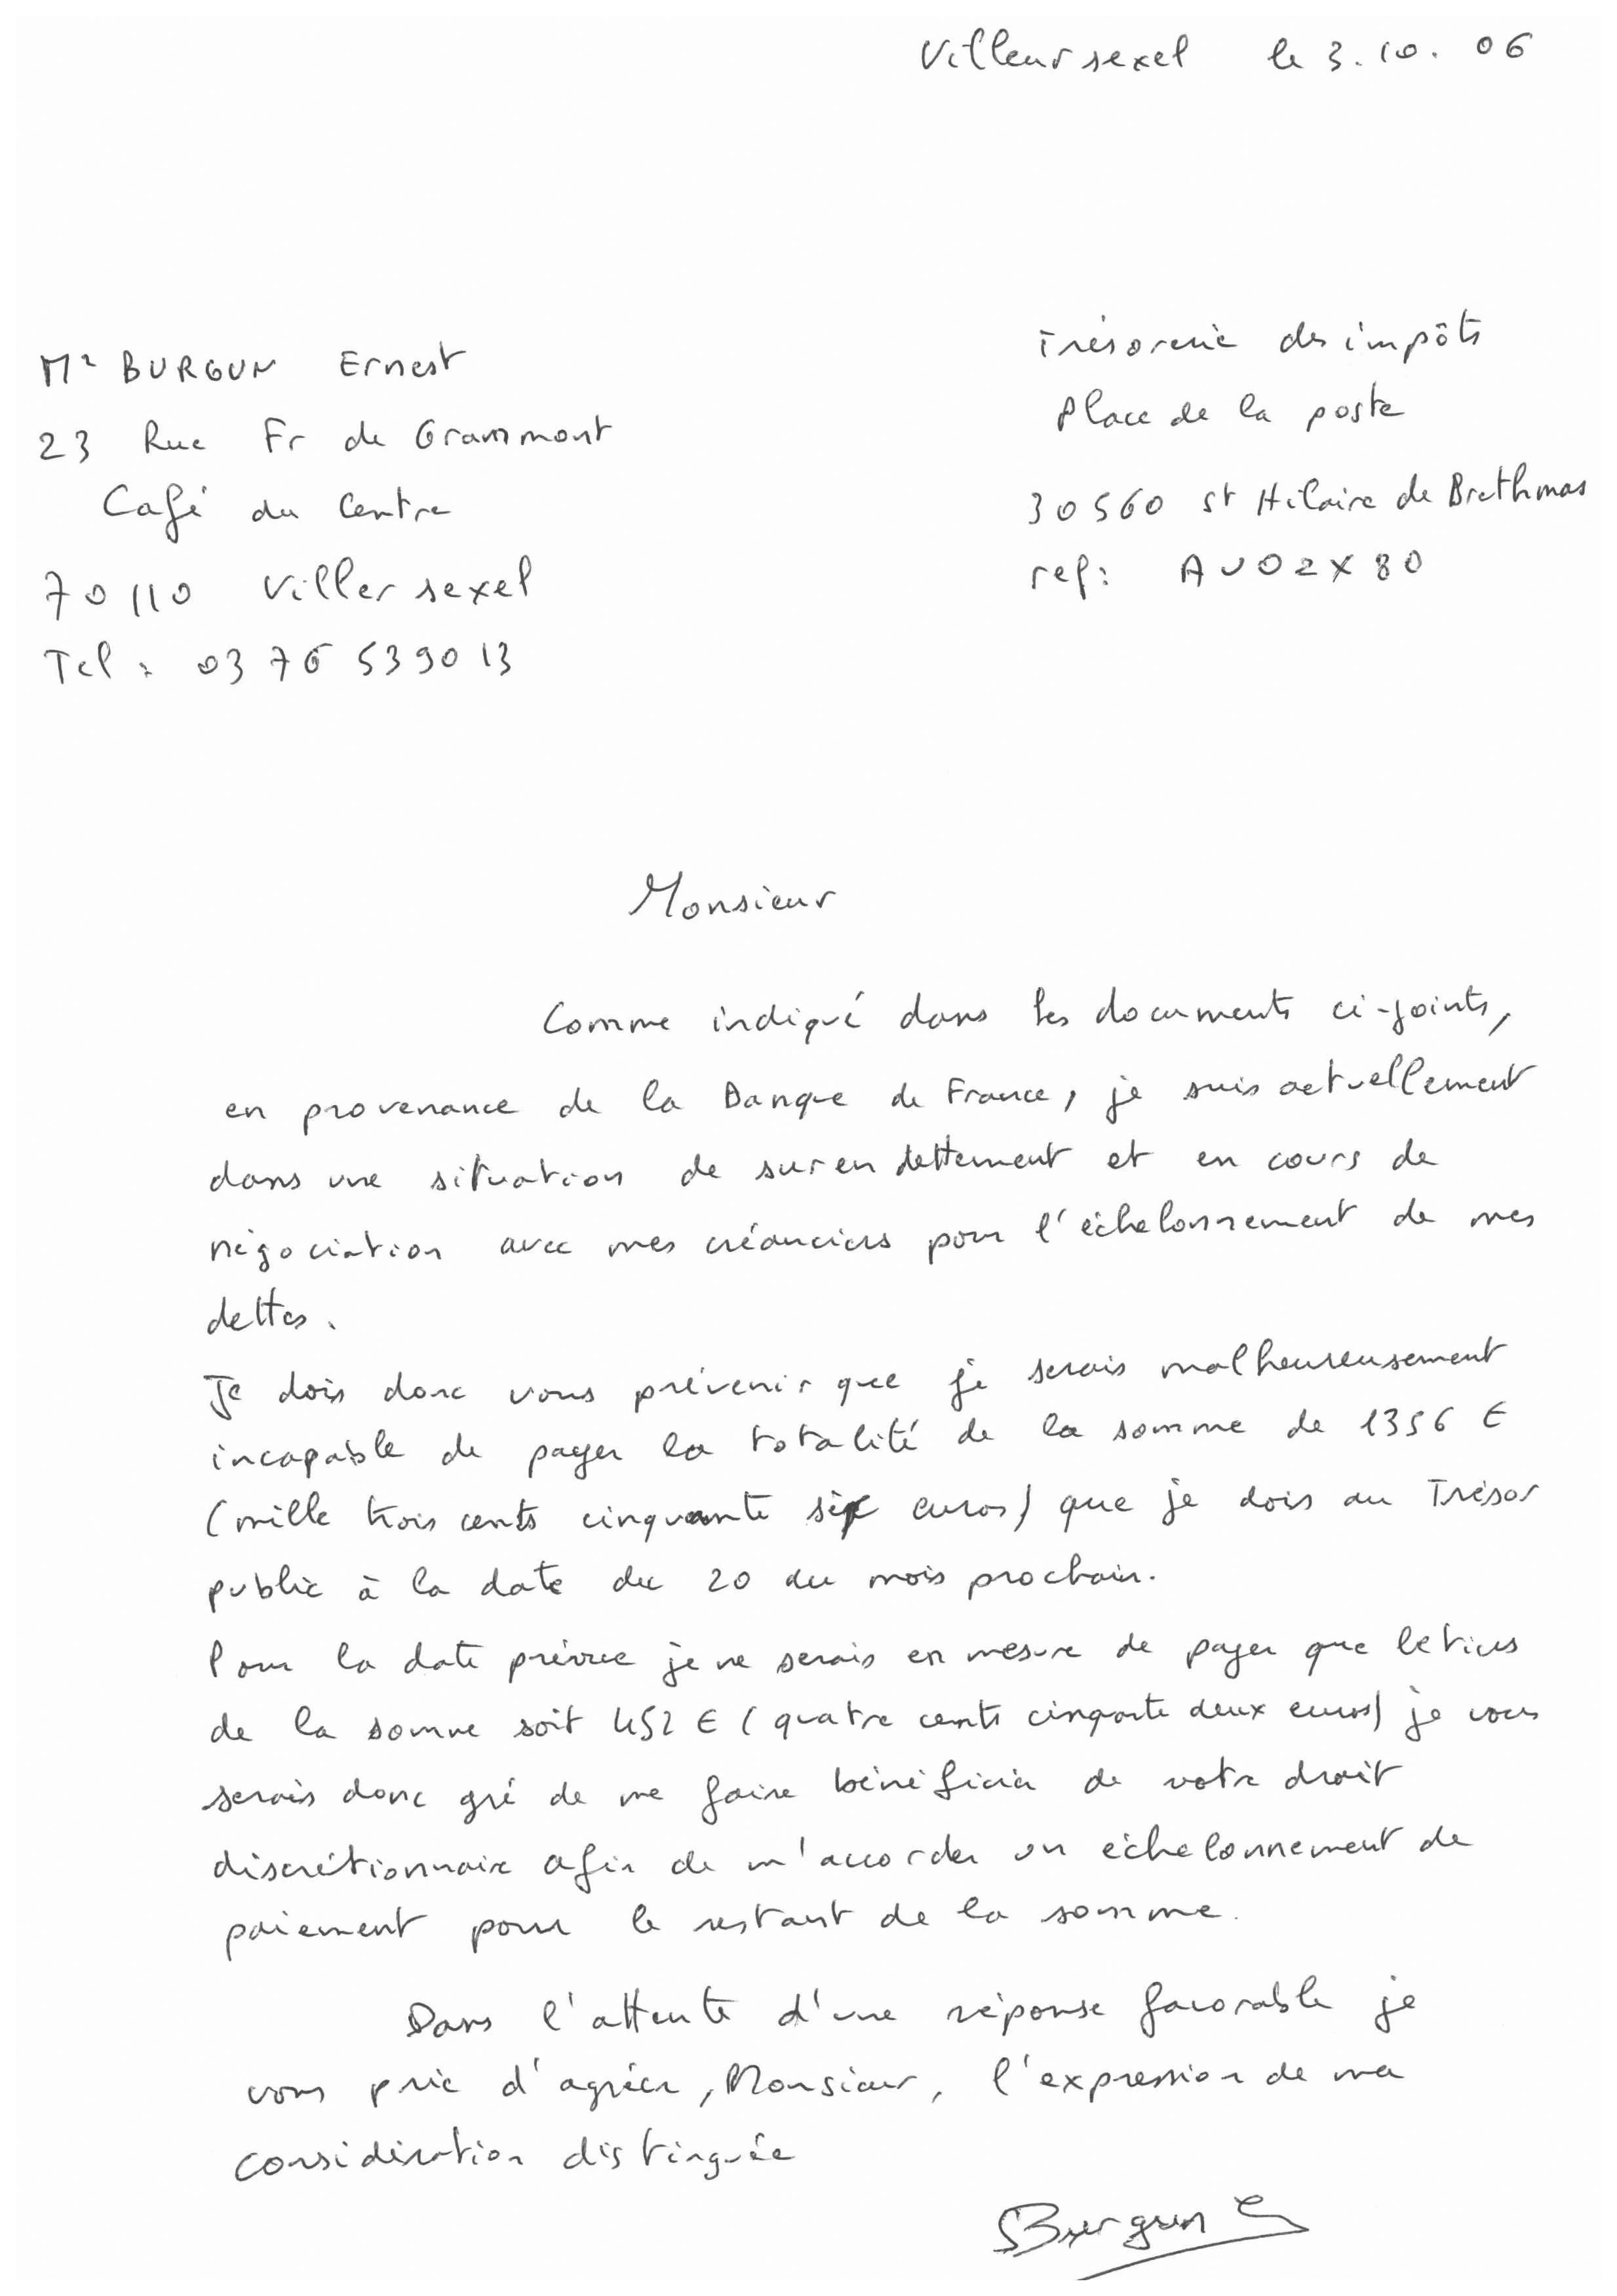 Villeursexel le 3.10.06
Mr BURGUN Ernest
23 Rue Fr de Grammont
Café du Centre
70110 Villersexel
Tel : 03 76 539013
Trésorerie des impôts
Place de la poste
30560 St Hilaire de Brethmas
ref: AVO2X80
Monsieur
Comme indiqué dans les documents ci-joints,
en provenance de la Banque de France, je suis actuellement
dans une situation de surendettement et en cours de
négociation avec mes créanciers pour l'échelonnement de mes
dettes.
Je dois donc vous prévenir que je serais malheureusement
incapable de payer la totalité de la somme de 1356 €
(mille trois cents cinquante six euros) que je dois au Trésor
public à la date du 20 du mois prochain.
Pour la date prévue je ne serais en mesure de payer que le tiers
de la somme soit 452 € (quatre cents cinquante deux euros) je vous
serais donc gré de me faire bénéficier de votre droit
discrétionnaire afin de m'accorder un échelonnement de
paiement pour le restant de la somme.
Dans l'attente d'une réponse favorable je
vous prie d'agréer, Monsieur, l'expression de ma
considération distinguée
Burgun E